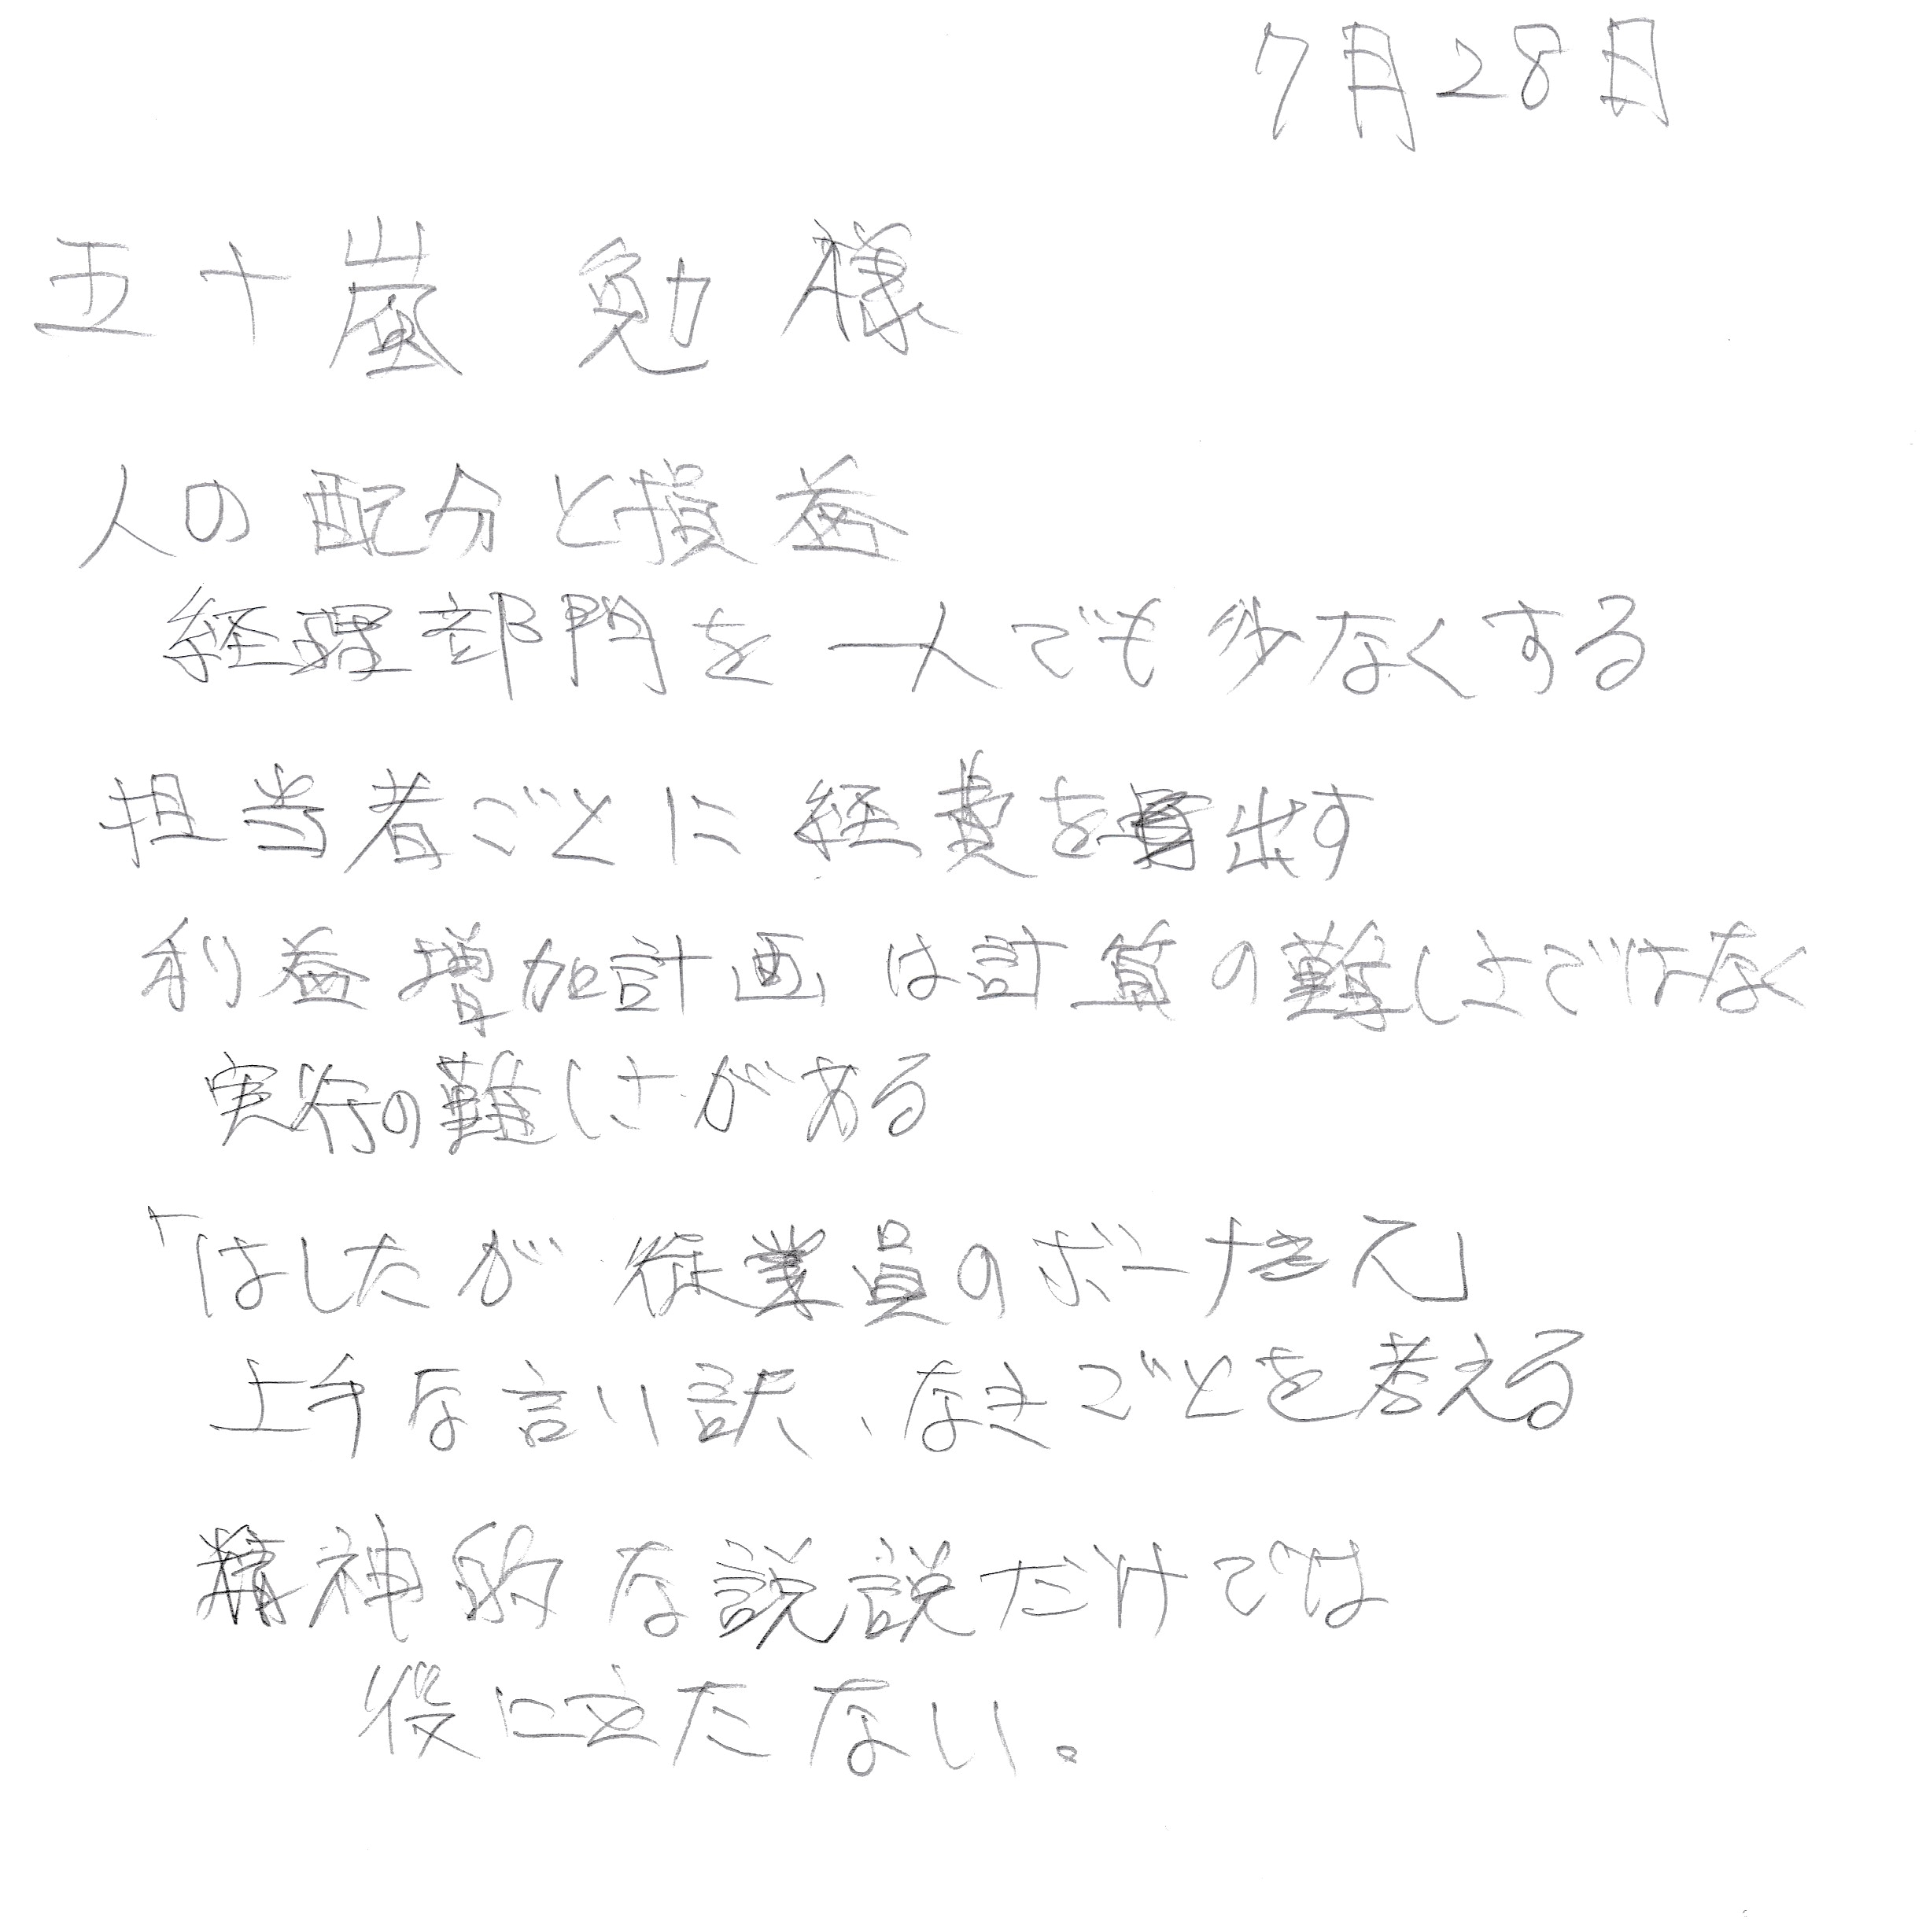 7月28日
五十嵐 勉 様
人の配分と損益
経理部門を一人でも少なくする
担当者ごとに経費を算出す
利益増加計画は計算の難しさではなく
実行の難しさがある
「はしたが従業員のボーナスえ」
上手な言い訳、なきごとを考える
精神的な説説だけでは
役に立たない。